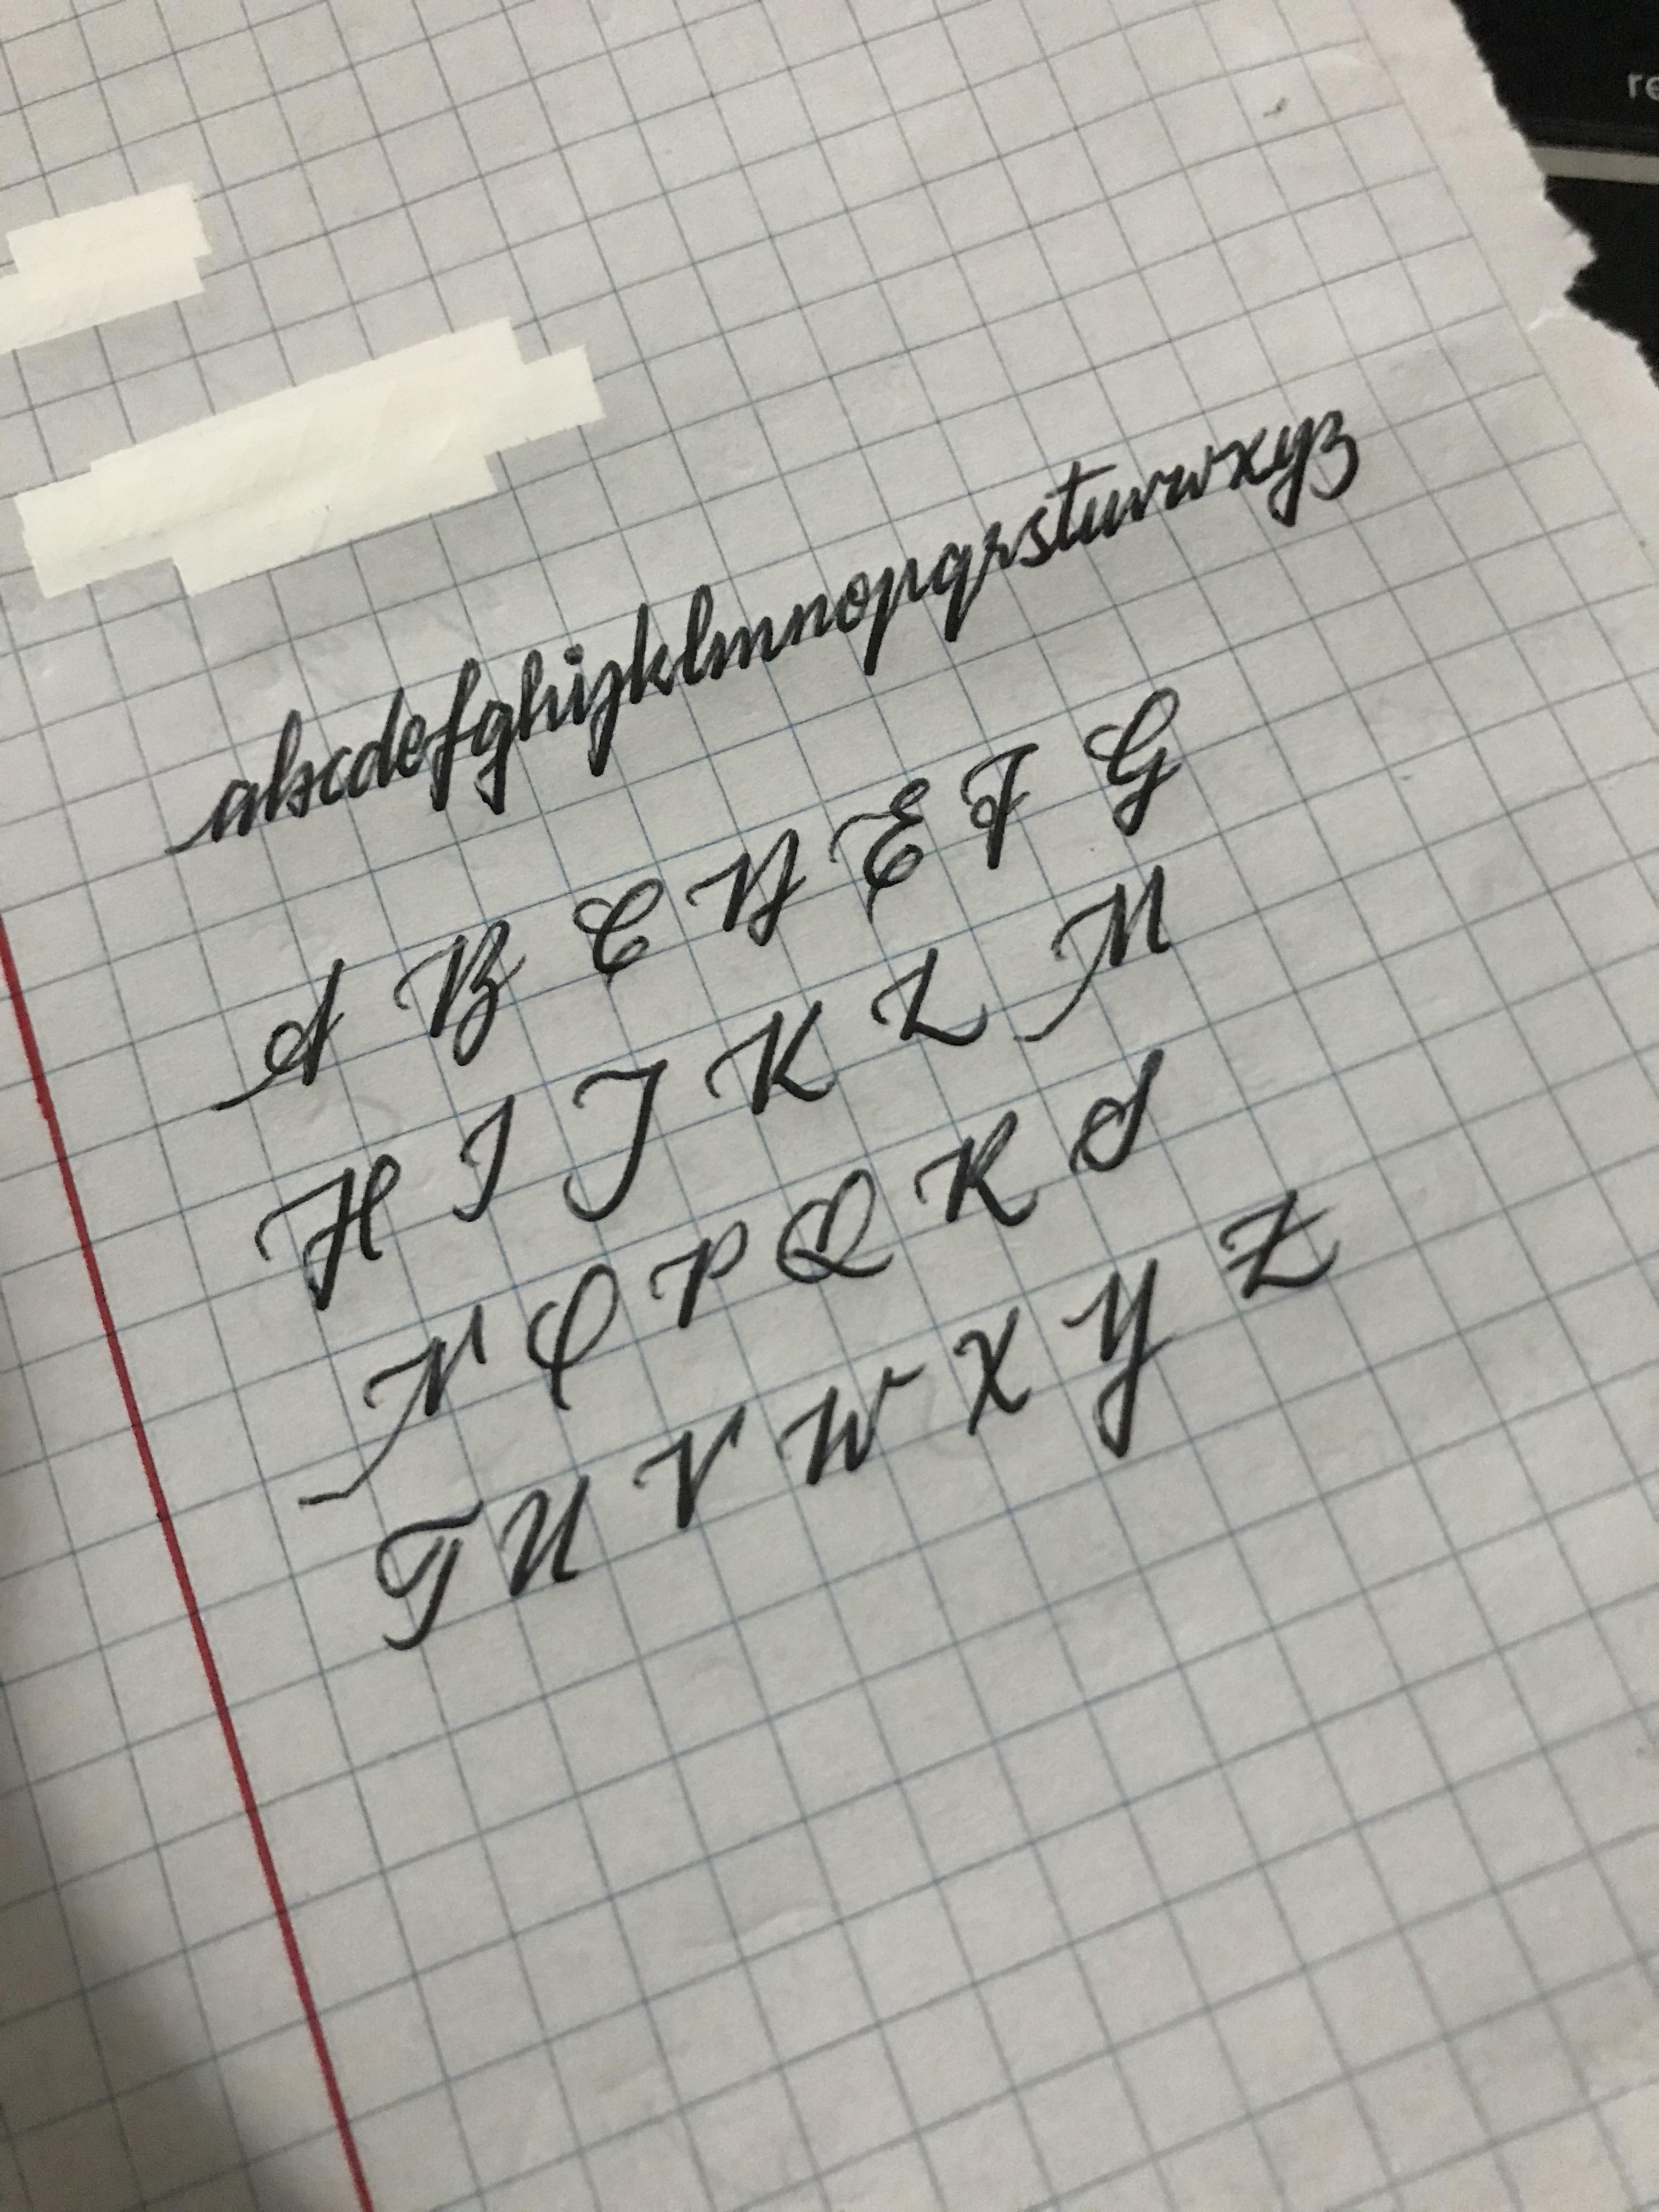 re
abcdefghijklmnopqrstuvwxyz
A B C D E F G
H I J K L M
N O P Q R S
T U V W X Y Z